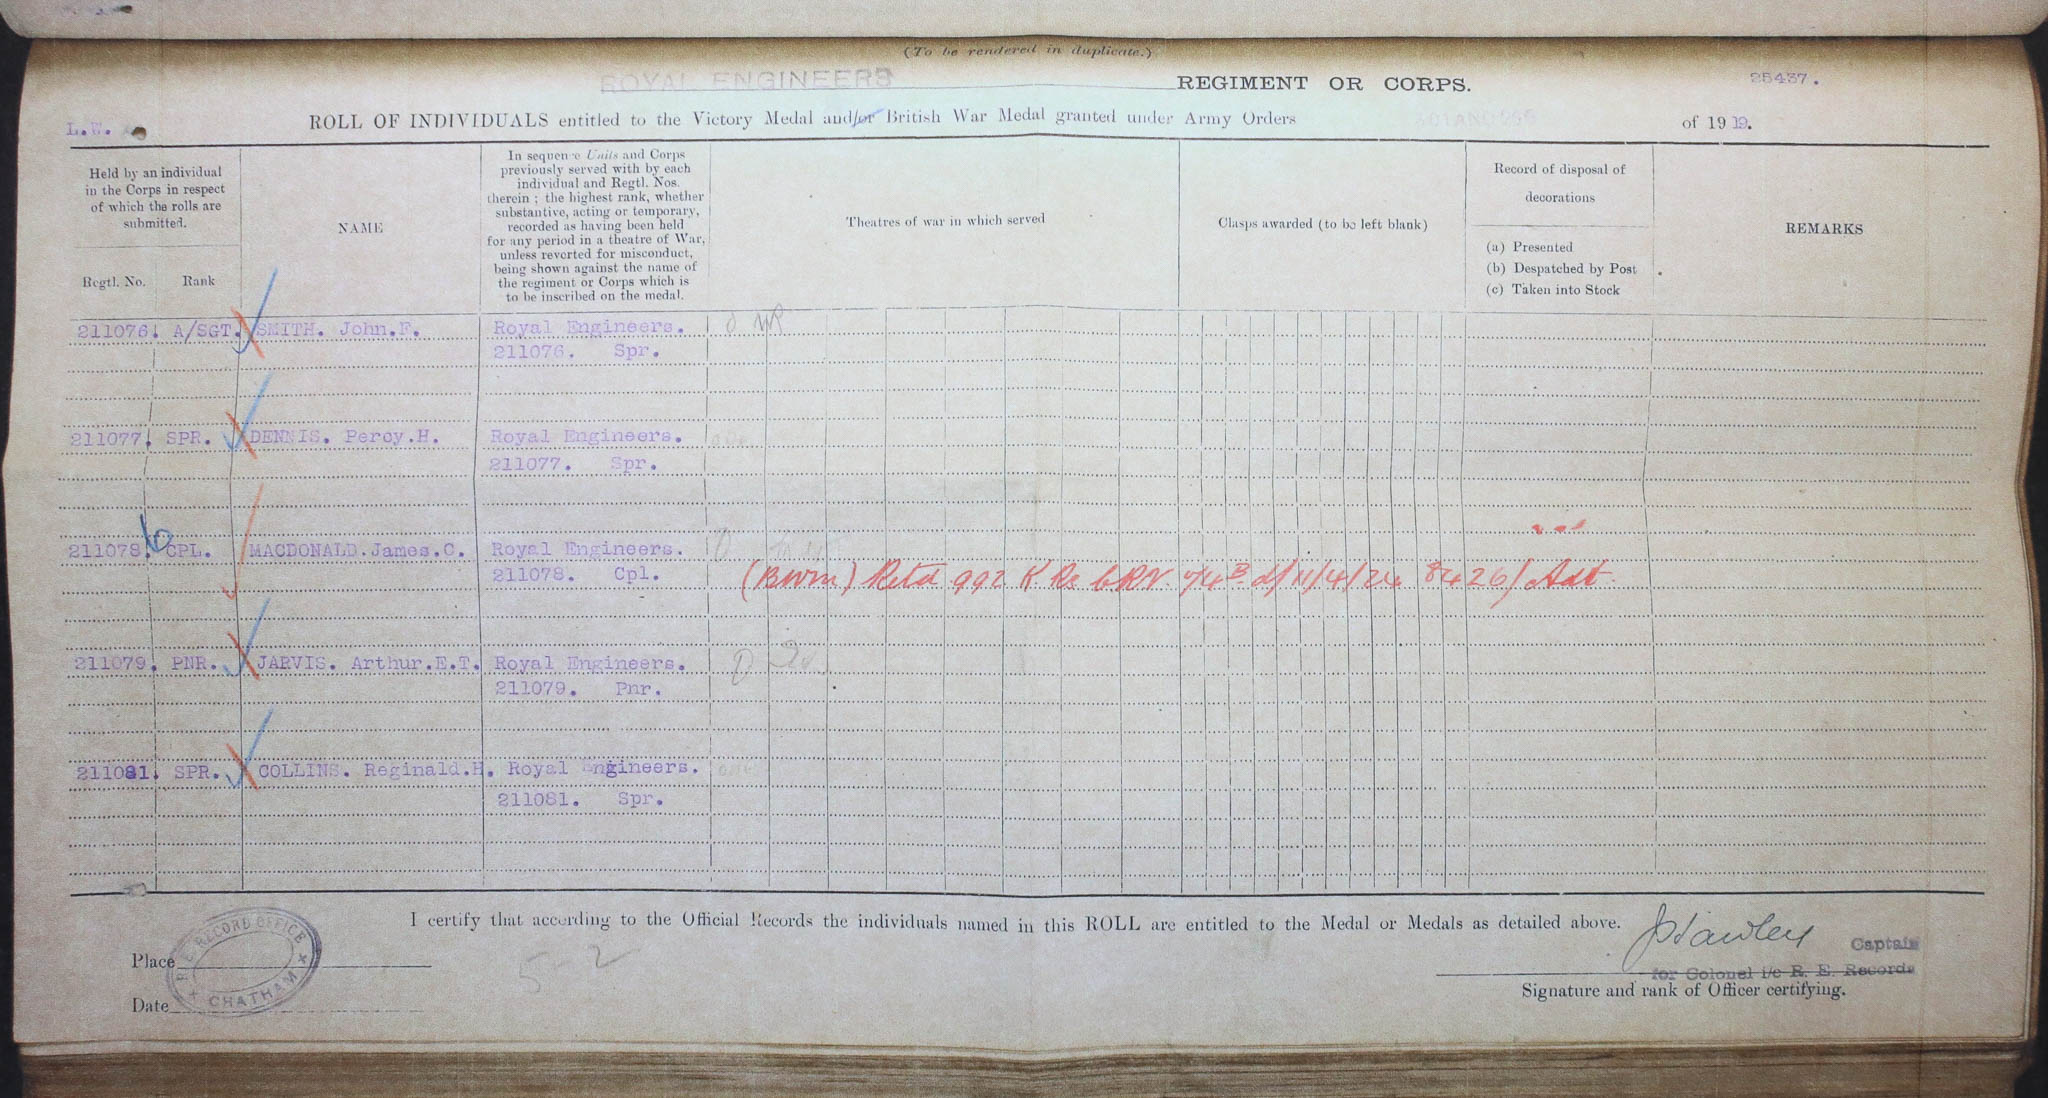 (To be rendered in duplicate.)
ROYAL ENGINEERS REGIMENT OR CORPS. 25437.
L.W. ROLL OF INDIVIDUALS entitled to the Victory Medal and/or British War Medal granted under Army Orders 301 AND 266 of 1919.
Held by an individual
in the Corps in respect
of which the rolls are
submitted.
Regtl. No. Rank
NAME
In sequence Units and Corps
previously served with by each
individual and Regtl. Nos.
therein ; the highest rank, whether
substantive, acting or temporary,
recorded as having been held
for any period in a theatre of War,
unless reverted for misconduct,
being shown against the name of
the regiment or Corps which is
to be inscribed on the medal.
Theatres of war in which served
Clasps awarded (to be left blank)
Record of disposal of
decorations
(a) Presented
(b) Despatched by Post
(c) Taken into Stock
REMARKS
211076. A/SGT. SMITH. John.F. Royal Engineers.
211076. Spr.
211077. SPR. DENNIS. Percy.H. Royal Engineers.
211077. Spr.
211078. CPL. MACDONALD.James.C. Royal Engineers.
211078. Cpl. (BWM) Retd 992 K Rs 8426/Adt.
211079. PNR. JARVIS. Arthur.E.T. Royal Engineers.
211079. Pnr.
211081. SPR. COLLINS. Reginald.H. Royal Engineers.
211081. Spr.
I certify that according to the Official Records the individuals named in this ROLL are entitled to the Medal or Medals as detailed above.
Captain
for Colonel i/c R. E. Records
Signature and rank of Officer certifying.
Place
Date
R.E. RECORD OFFICE
CHATHAM
5-2